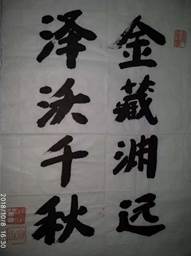 金藏渊远
泽沃千秋
2018/10/8 16:30